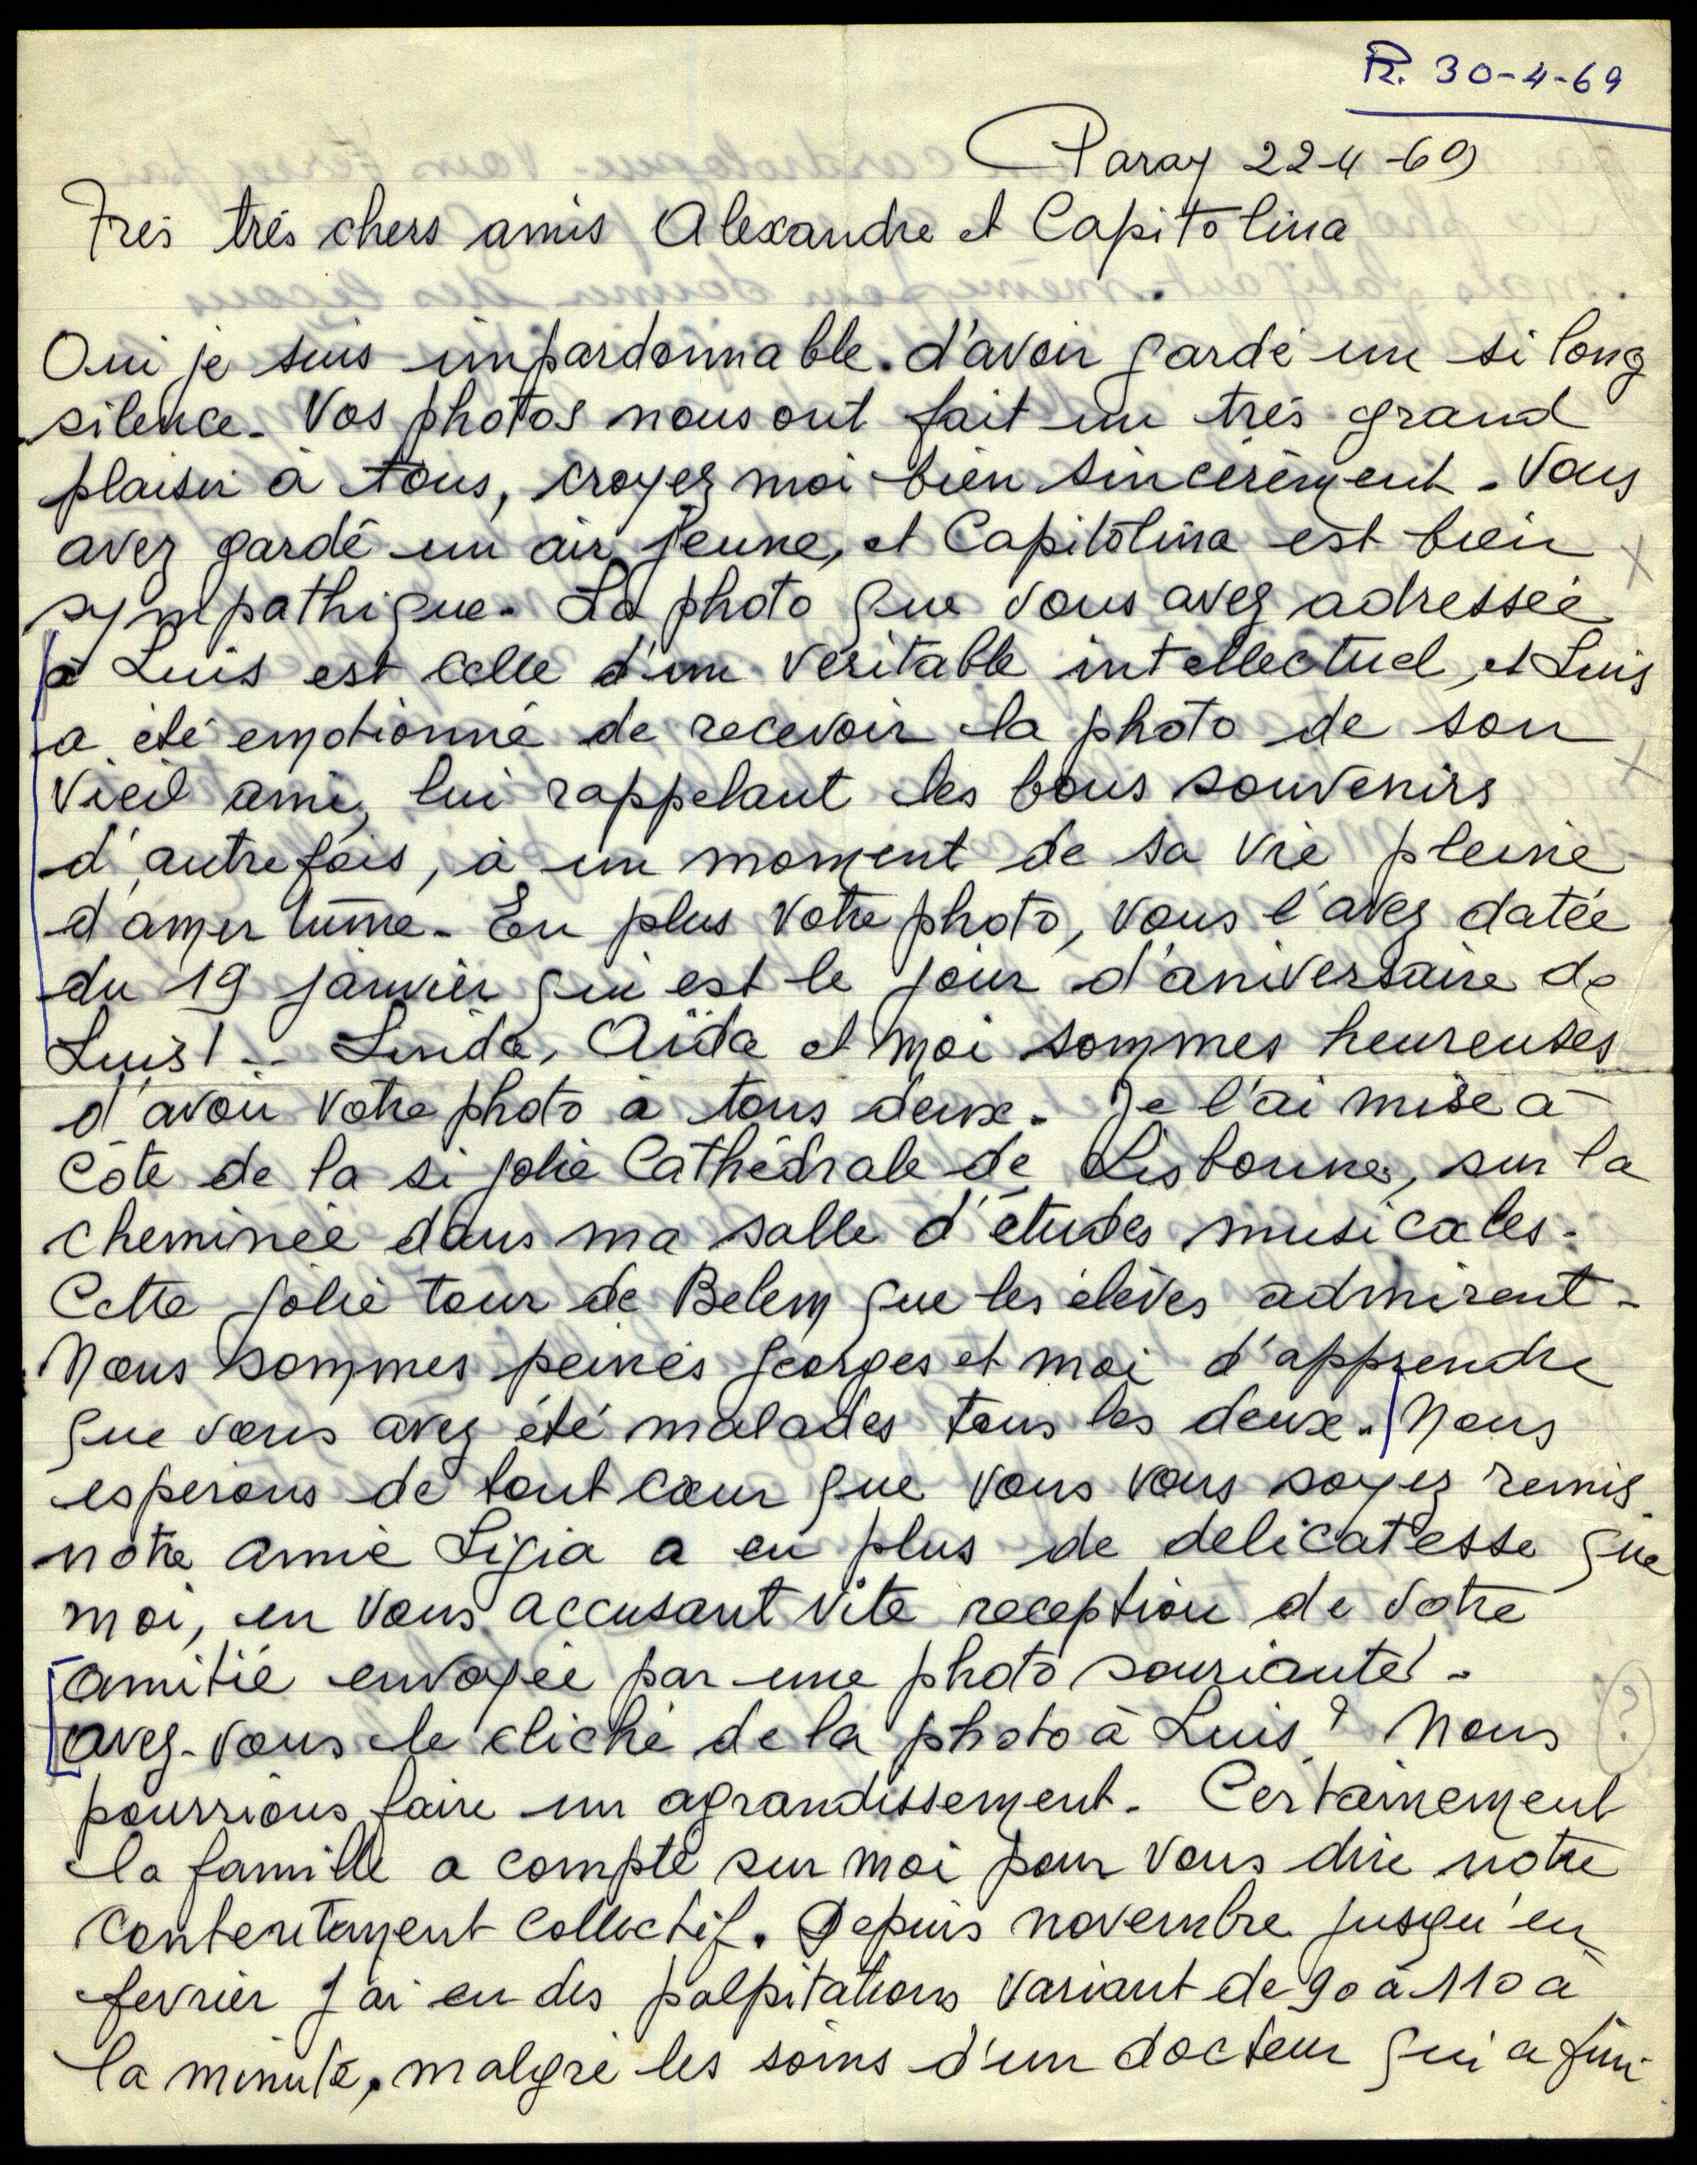 R. 30-4-69
Paray 22-4-69
Trés trés chers amis Alexandre et Capitolina
Oui je suis impardonnable. d'avoir gardé un si long
silence. Vos photos nous ont fait un trés grand
plaisir à tous, croyez moi bien sincérement. Vous
avez gardé un air jeune, et Capitolina est bien
sympathique. La photo que vous avez adressée
à Luis est celle d'un véritable intellectuel, et Luis
a été emotionné de recevoir la photo de son
vieil ami, lui rappelant les bons souvenirs
d'autrefois, à un moment de sa vie pleine
d'amertume. En plus votre photo, vous l'avez datée
du 19 janvier qui est le jour d'aniversaire de
Luis! - Linda, Aïda et moi sommes heureuses
d'avoir votre photo à tous deux. Je l'ai mise à
côté de la si jolie Cathédrale de Lisbonne, sur la
cheminée dans ma salle d'études musicales.
Cette jolie tour de Belem que les élèves admirent -
Nous sommes peinés Georges et moi d'apprendre
que vous avez été malades tous les deux. Nous
esperons de tout cœur que vous vous soyez remis
notre amie Ligia a eu plus de delicatesse que
moi, en vous accusant vite reception de votre
amitié envoyée par une photo souriante! -
avez-vous le cliché de la photo à Luis? Nous
pourrions faire un agrandissement. Certainement
la famille a compté sur moi pour vous dire notre
contentement collectif. Depuis novembre jusqu'en
fevrier j'ai eu des palpitations variant de 90 à 110 à
la minute, malgré les soins d'un docteur qui a fini